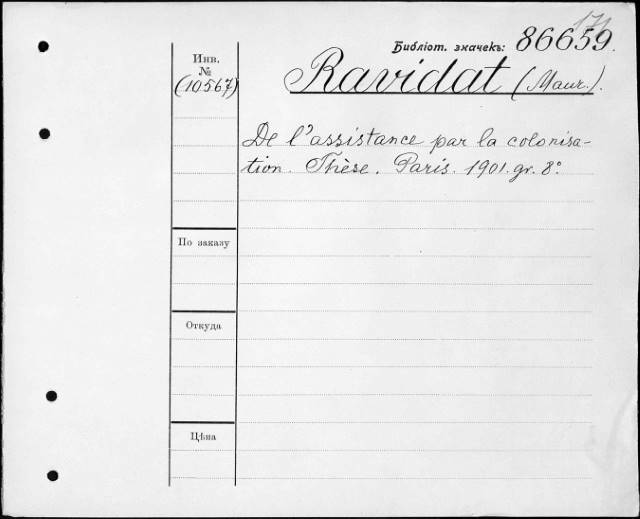 171
Библіот. значекъ: 86659.
Инв.
№
(10567)
Ravidat (Maur.).
De l'assistance par la colonisa-
tion. Thèse. Paris. 1901. gr. 8°.
По заказу
Откуда
Цѣна